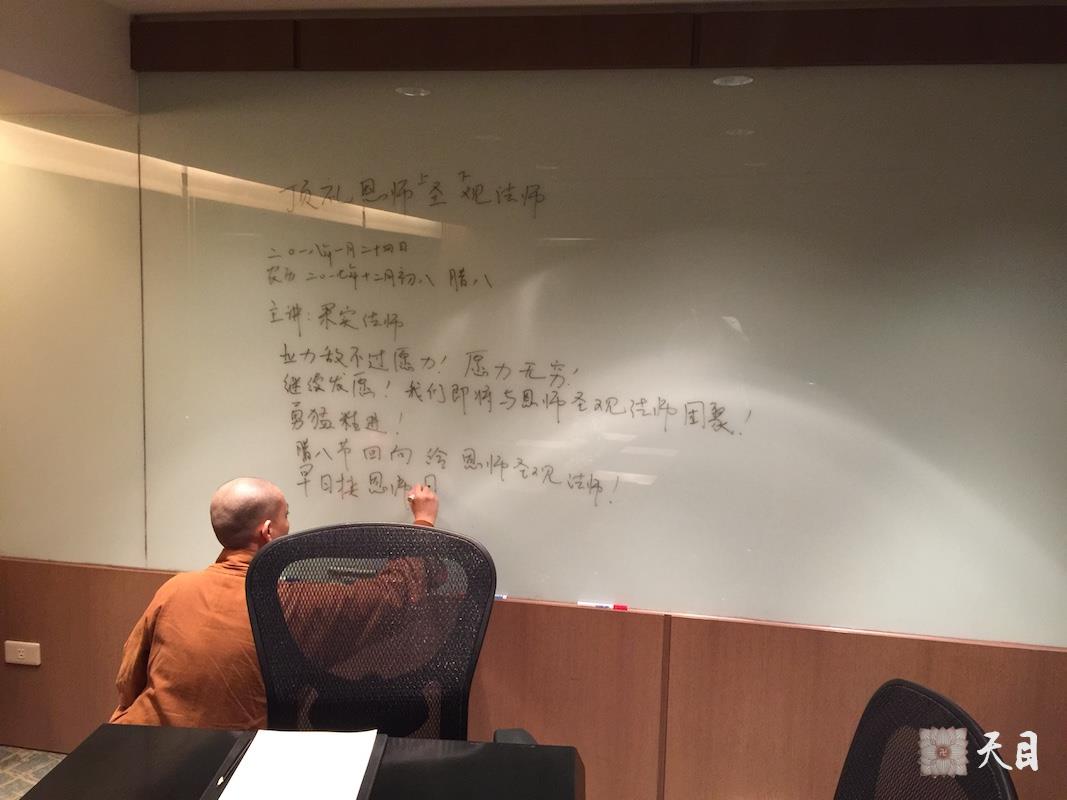 顶礼恩师上圣下观法师
二〇一八年一月二十四日
农历 二〇一七年十二月初八 腊八
主讲：果实法师
业力敌不过愿力！愿力无穷！
继续发愿！我们即将与恩师圣观法师团聚！
勇猛精进！
腊八节回向给恩师圣观法师！
早日接恩师
天目